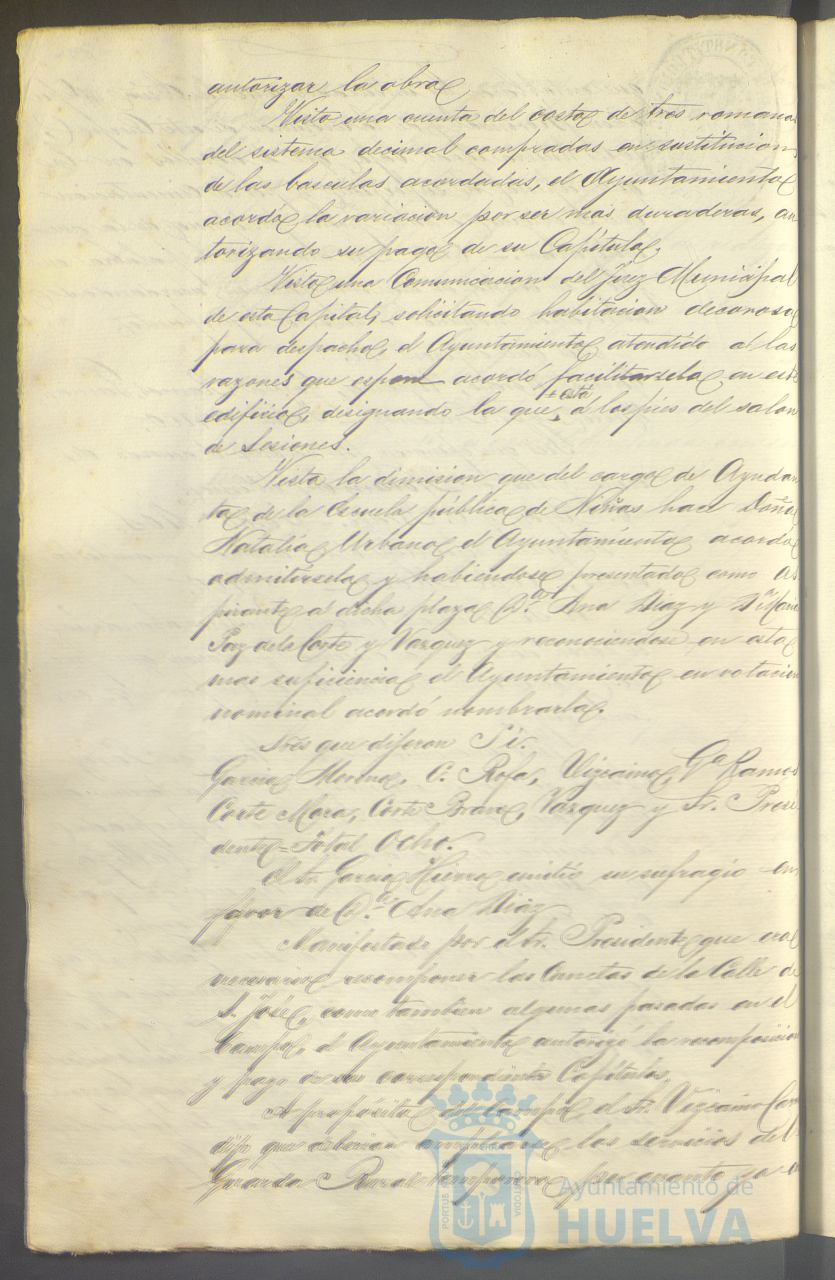 autorizar la obra
Visto una cuenta del costo de tres romanas
del sistema decimal compradas en sustitucion
de las basculas acordadas, el Ayuntamiento
acordó la variacion por ser mas duraderas, au
torizando su pago de su Capítulo.
Visto una Comunicacion del Juez Municipal
de esta Capital, solicitando habitacion decorosa
para despacho, el Ayuntamiento atendido a las
razones que espone acordó facilitarsela en este
edificio, designando la que está á los pies del salon
de Sesiones.
Vista la dimision que del cargo de Ayudan
ta de la Escuela pública de Niñas hace Doña
Natalia Urbano el Ayuntamiento acordó
admitirsela y habiendose presentado como As
pirante a dicha plaza D.ª Ana Diaz y D.ª Maria
Paz de la Corte y Vazquez y reconociendose en esta
mas suficiencia el Ayuntamiento en votacion
nominal acordó nombrarla.
Sres que dijeron Sí.
Garcia Moreno, C. Rofa, Vizcaino, G.ª Ramos
Corte Mora, Corte Bravo, Vazquez y Sr. Presi
dente = Total Ocho.
El Sr. Garcia Hierro emitió su sufragio en
favor de D.ª Ana Diaz
Manifestado por el Sr. Presidente que era
necesario recomponer las Cunetas de la Calle de
S. José, como tambien algunas pasadas en el
Campo, el Ayuntamiento autorizó la recomposicion
y pago de sus correspondientes Capítulos.
A propósito del Campo, el Sr. Vizcaino
dijo que debian ampliarse los servicios del
Guarda Rural por cuanto ya
PORTUS
CUSTODIA
Ayuntamiento de
HUELVA